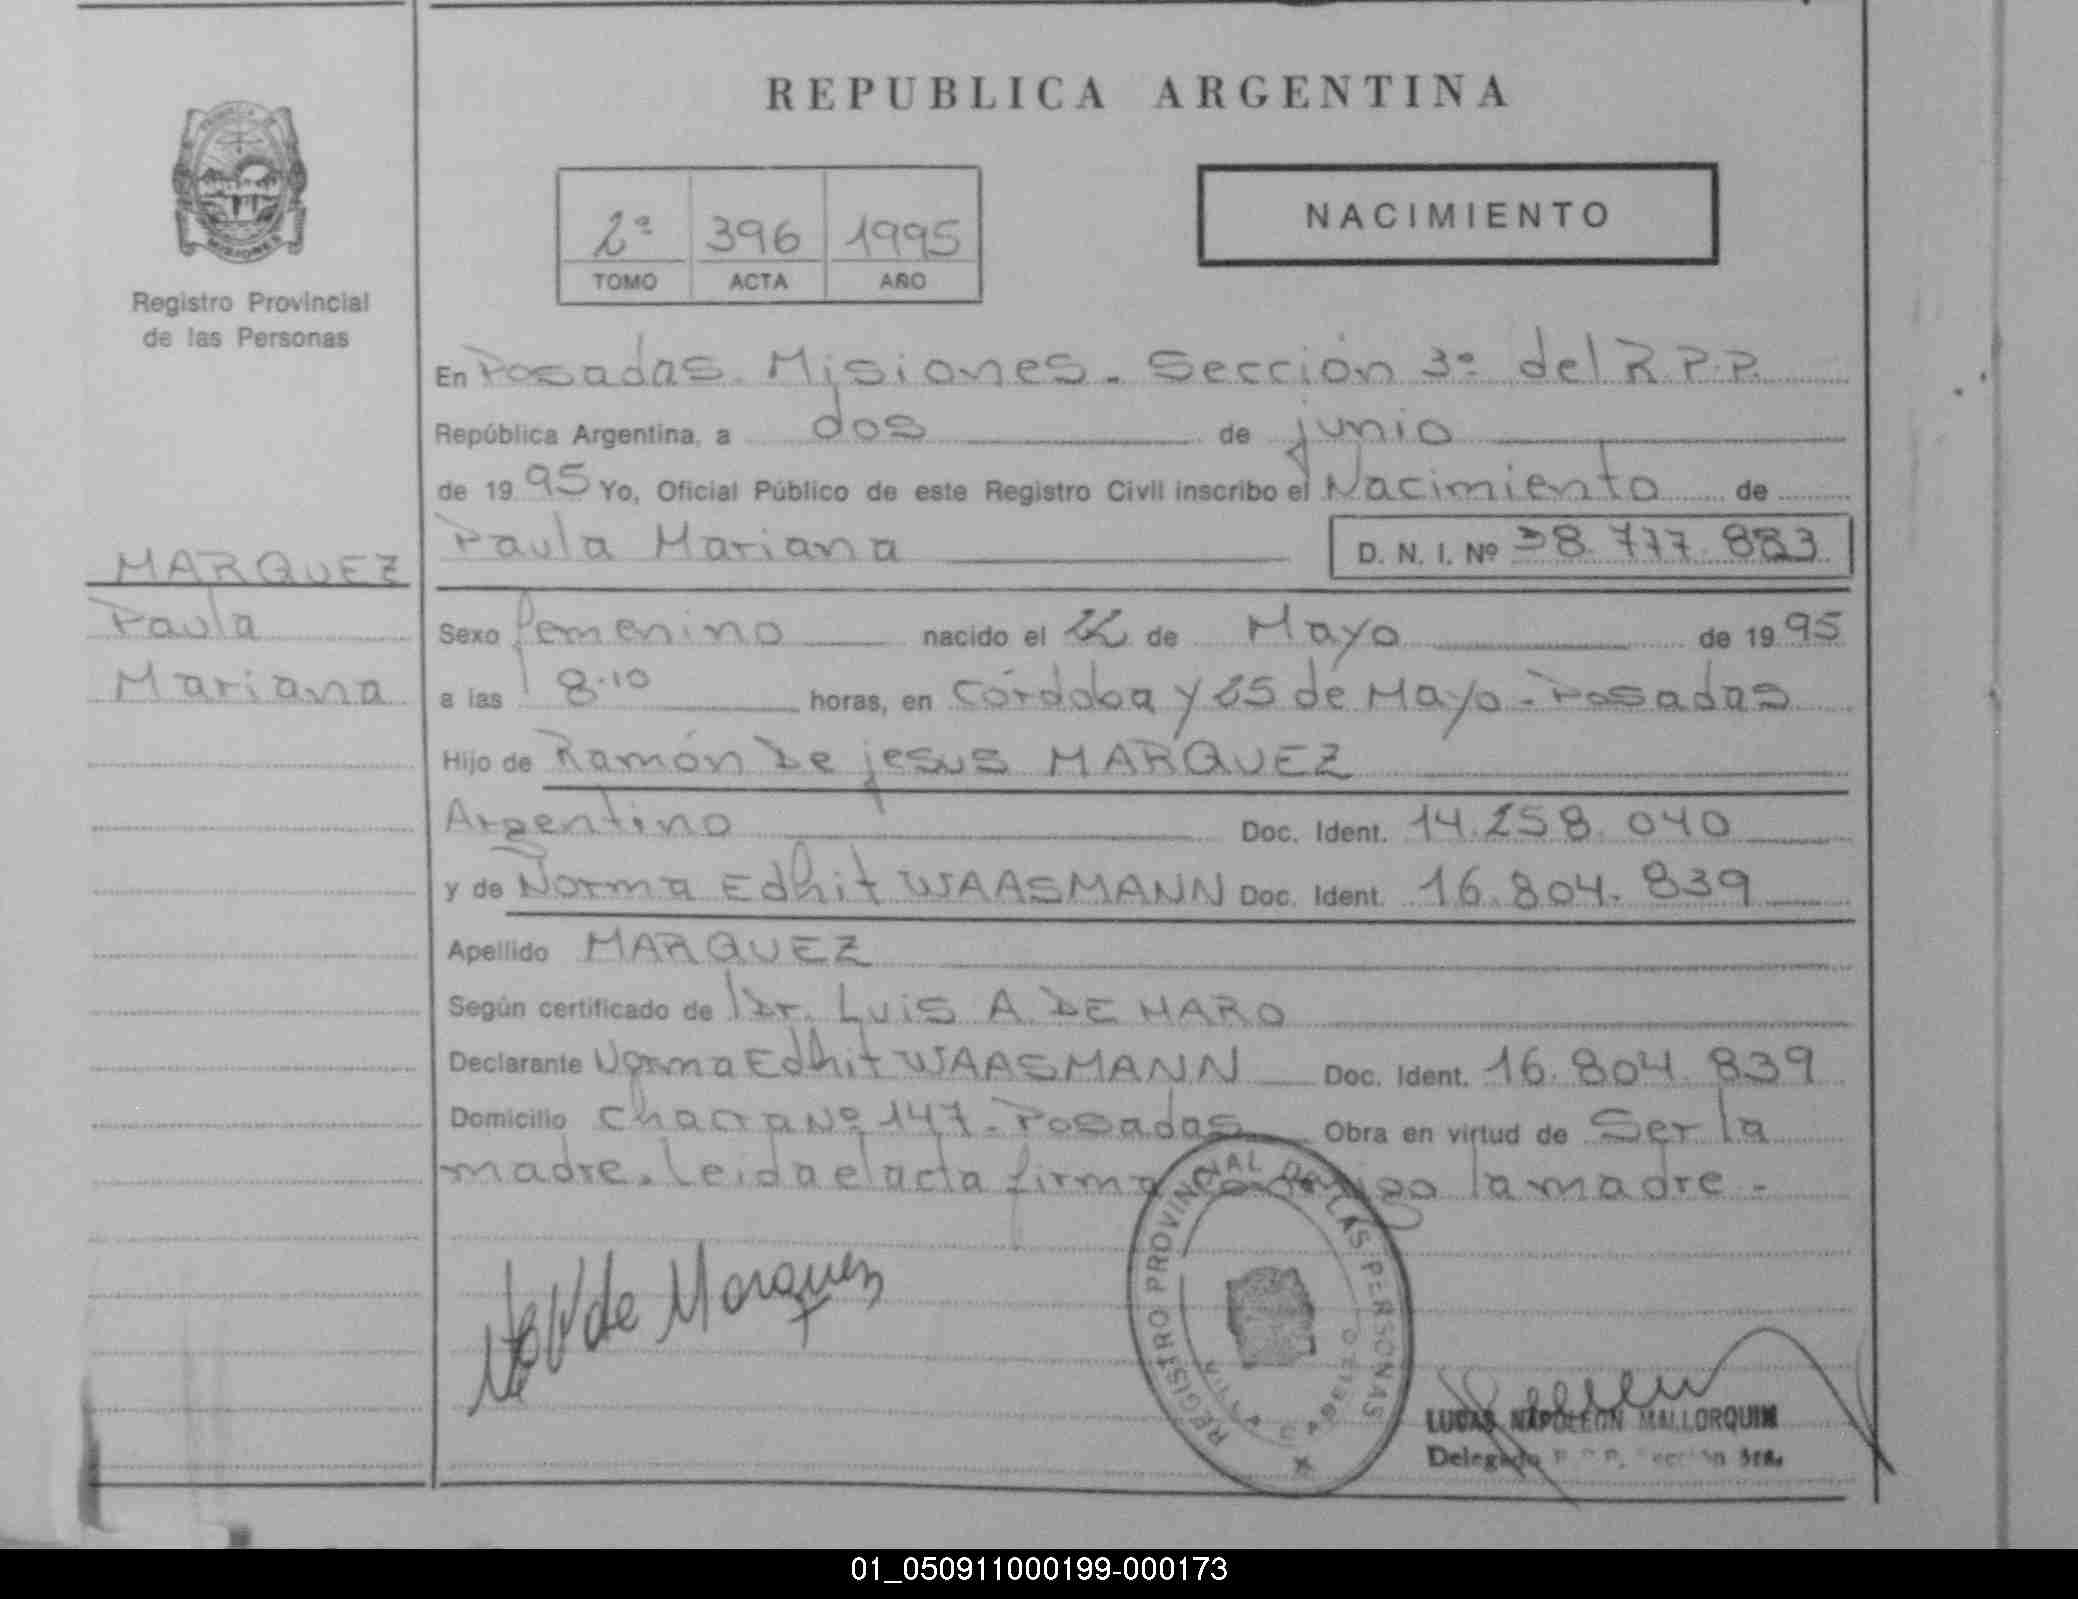 REPUBLICA ARGENTINA
NACIMIENTO
2ª 396 1995
TOMO ACTA AÑO
MISIONES
Registro Provincial
de las Personas
En Posadas. Misiones. Sección 3ª del R.P.P.
República Argentina, a dos de junio
de 1995 Yo, Oficial Público de este Registro Civil inscribo el Nacimiento de
Paula Mariana D. N. I. Nº 38.777.883
MARQUEZ
Paula
Mariana
Sexo femenino nacido el 22 de Mayo de 1995
a las 8.10 horas, en Córdoba y 25 de Mayo - Posadas
Hijo de Ramón De jesus MARQUEZ
Argentino Doc. Ident. 14.258.040
y de Norma Edhit WAASMANN Doc. Ident. 16.804.839
Apellido MARQUEZ
Según certificado de Dr. Luis A. DE HARO
Declarante Norma Edhit WAASMANN Doc. Ident. 16.804.839
Domicilio chacra Nº 147 - Posadas Obra en virtud de Ser la
madre. leida el acta firma conmigo la madre -
de Marquez
REGISTRO PROVINCIAL DE LAS PERSONAS
LUCAS NAPOLEON MALLORQUIN
Delegado R.P.P. Sección 3ra.
01_050911000199-000173